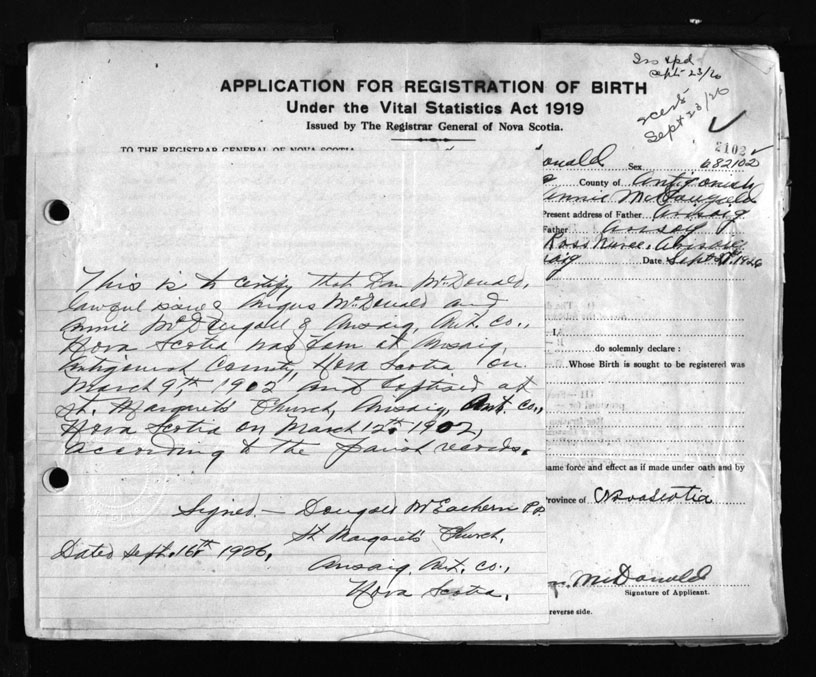 Ins & pd
Sept 23/26
Sept 23/26
APPLICATION FOR REGISTRATION OF BIRTH
Under the Vital Statistics Act 1919
Issued by The Registrar General of Nova Scotia.
TO THE REGISTRAR GENERAL OF NOVA SCOTIA
2102
onald Sex 682102
County of Antigonish
Annie McDougald
Present address of Father Arisaig
Father Arisaig
Ross
aig Date Sept 1926
This is to certify that Dan McDonald,
lawful Angus McDonald and
Annie McDougall of Arisaig, Ant. Co.,
Nova Scotia was born at Arisaig,
Antigonish County, Nova Scotia on
March 9th, 1902 and baptised at
St. Margaret's Church, Arisaig, Ant. Co.,
Nova Scotia on March 12th 1902,
according to the parish records.
I,
do solemnly declare :
Whose Birth is sought to be registered was
same force and effect as if made under oath and by
Province of Nova Scotia
Signed.— Dougald McEachern P.P.
St Margaret's Church,
Dated Sept. 16th 1926, Arisaig, Ant. Co.,
Nova Scotia.
McDonald
Signature of Applicant.
reverse side.